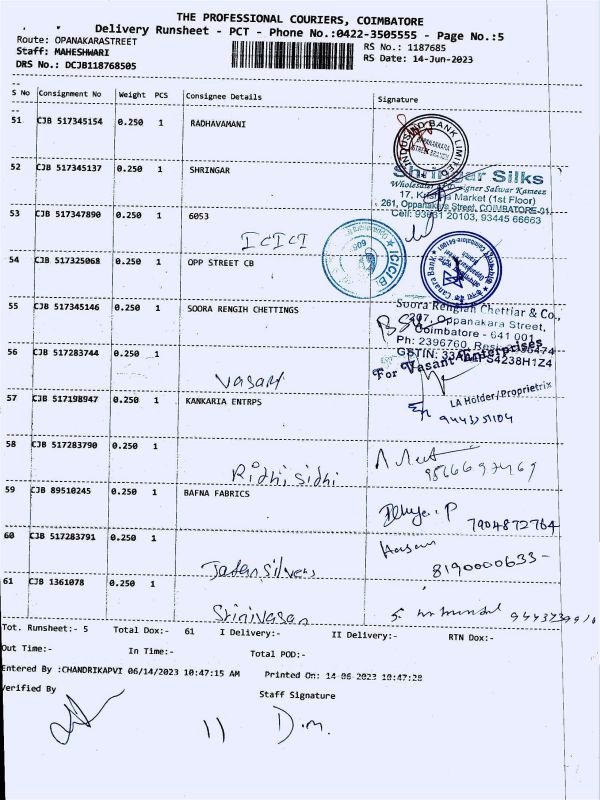 THE PROFESSIONAL COURIERS, COIMBATORE
Delivery Runsheet - PCT - Phone No.:0422-3505555 - Page No.:5
Route: OPANAKARASTREET
RS No.: 1187685
Staff: MAHESHWARI
RS Date: 14-Jun-2023
DRS No.: DCJB118768505
S No Consignment No Weight PCS Consignee Details Signature
51 CJB 517345154 0.250 1 RADHAVAMANI
INDUSIND BANK LIMITED
52 CJB 517345137 0.250 1 SHRINGAR
Shringar Silks
Wholesaler Designer Salwar Kameez
17, Krishna Market (1st Floor)
261, Oppanakara Street, COIMBATORE-01
Cell: 93631 20103, 93445 66663
53 CJB 517347890 0.250 1 6053
ICICI
54 CJB 517325068 0.250 1 OPP STREET CB
Canara Bank
55 CJB 517345146 0.250 1 SOORA RENGIH CHETTINGS
Soora Rengiah Chettiar & Co.,
207, Oppanakara Street,
Coimbatore - 641 001
Ph: 2396760,
GSTIN:
56 CJB 517283744 0.250 1
Vasant
For Vasant Enterprises
LA Holder/Proprietrix
57 CJB 517198947 0.250 1 KANKARIA ENTRPS
9443751104
58 CJB 517283790 0.250 1
Ridhi sidhi
59 CJB 89510245 0.250 1 BAFNA FABRICS
7904872764
60 CJB 517283791 0.250 1
8190000633-
61 CJB 1361078 0.250 1
Srinivasan
Tot. Runsheet:- 5 Total Dox:- 61 I Delivery:- II Delivery:- RTN Dox:-
Out Time:- In Time:- Total POD:-
Entered By :CHANDRIKAPVI 06/14/2023 10:47:15 AM Printed On: 14-06-2023 10:47:28
Verified By Staff Signature
D.m.